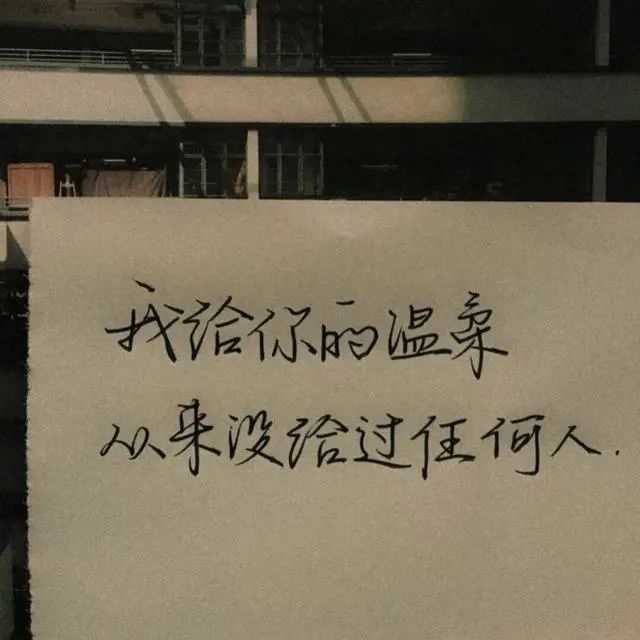 我给你的温柔
从来没给过任何人.